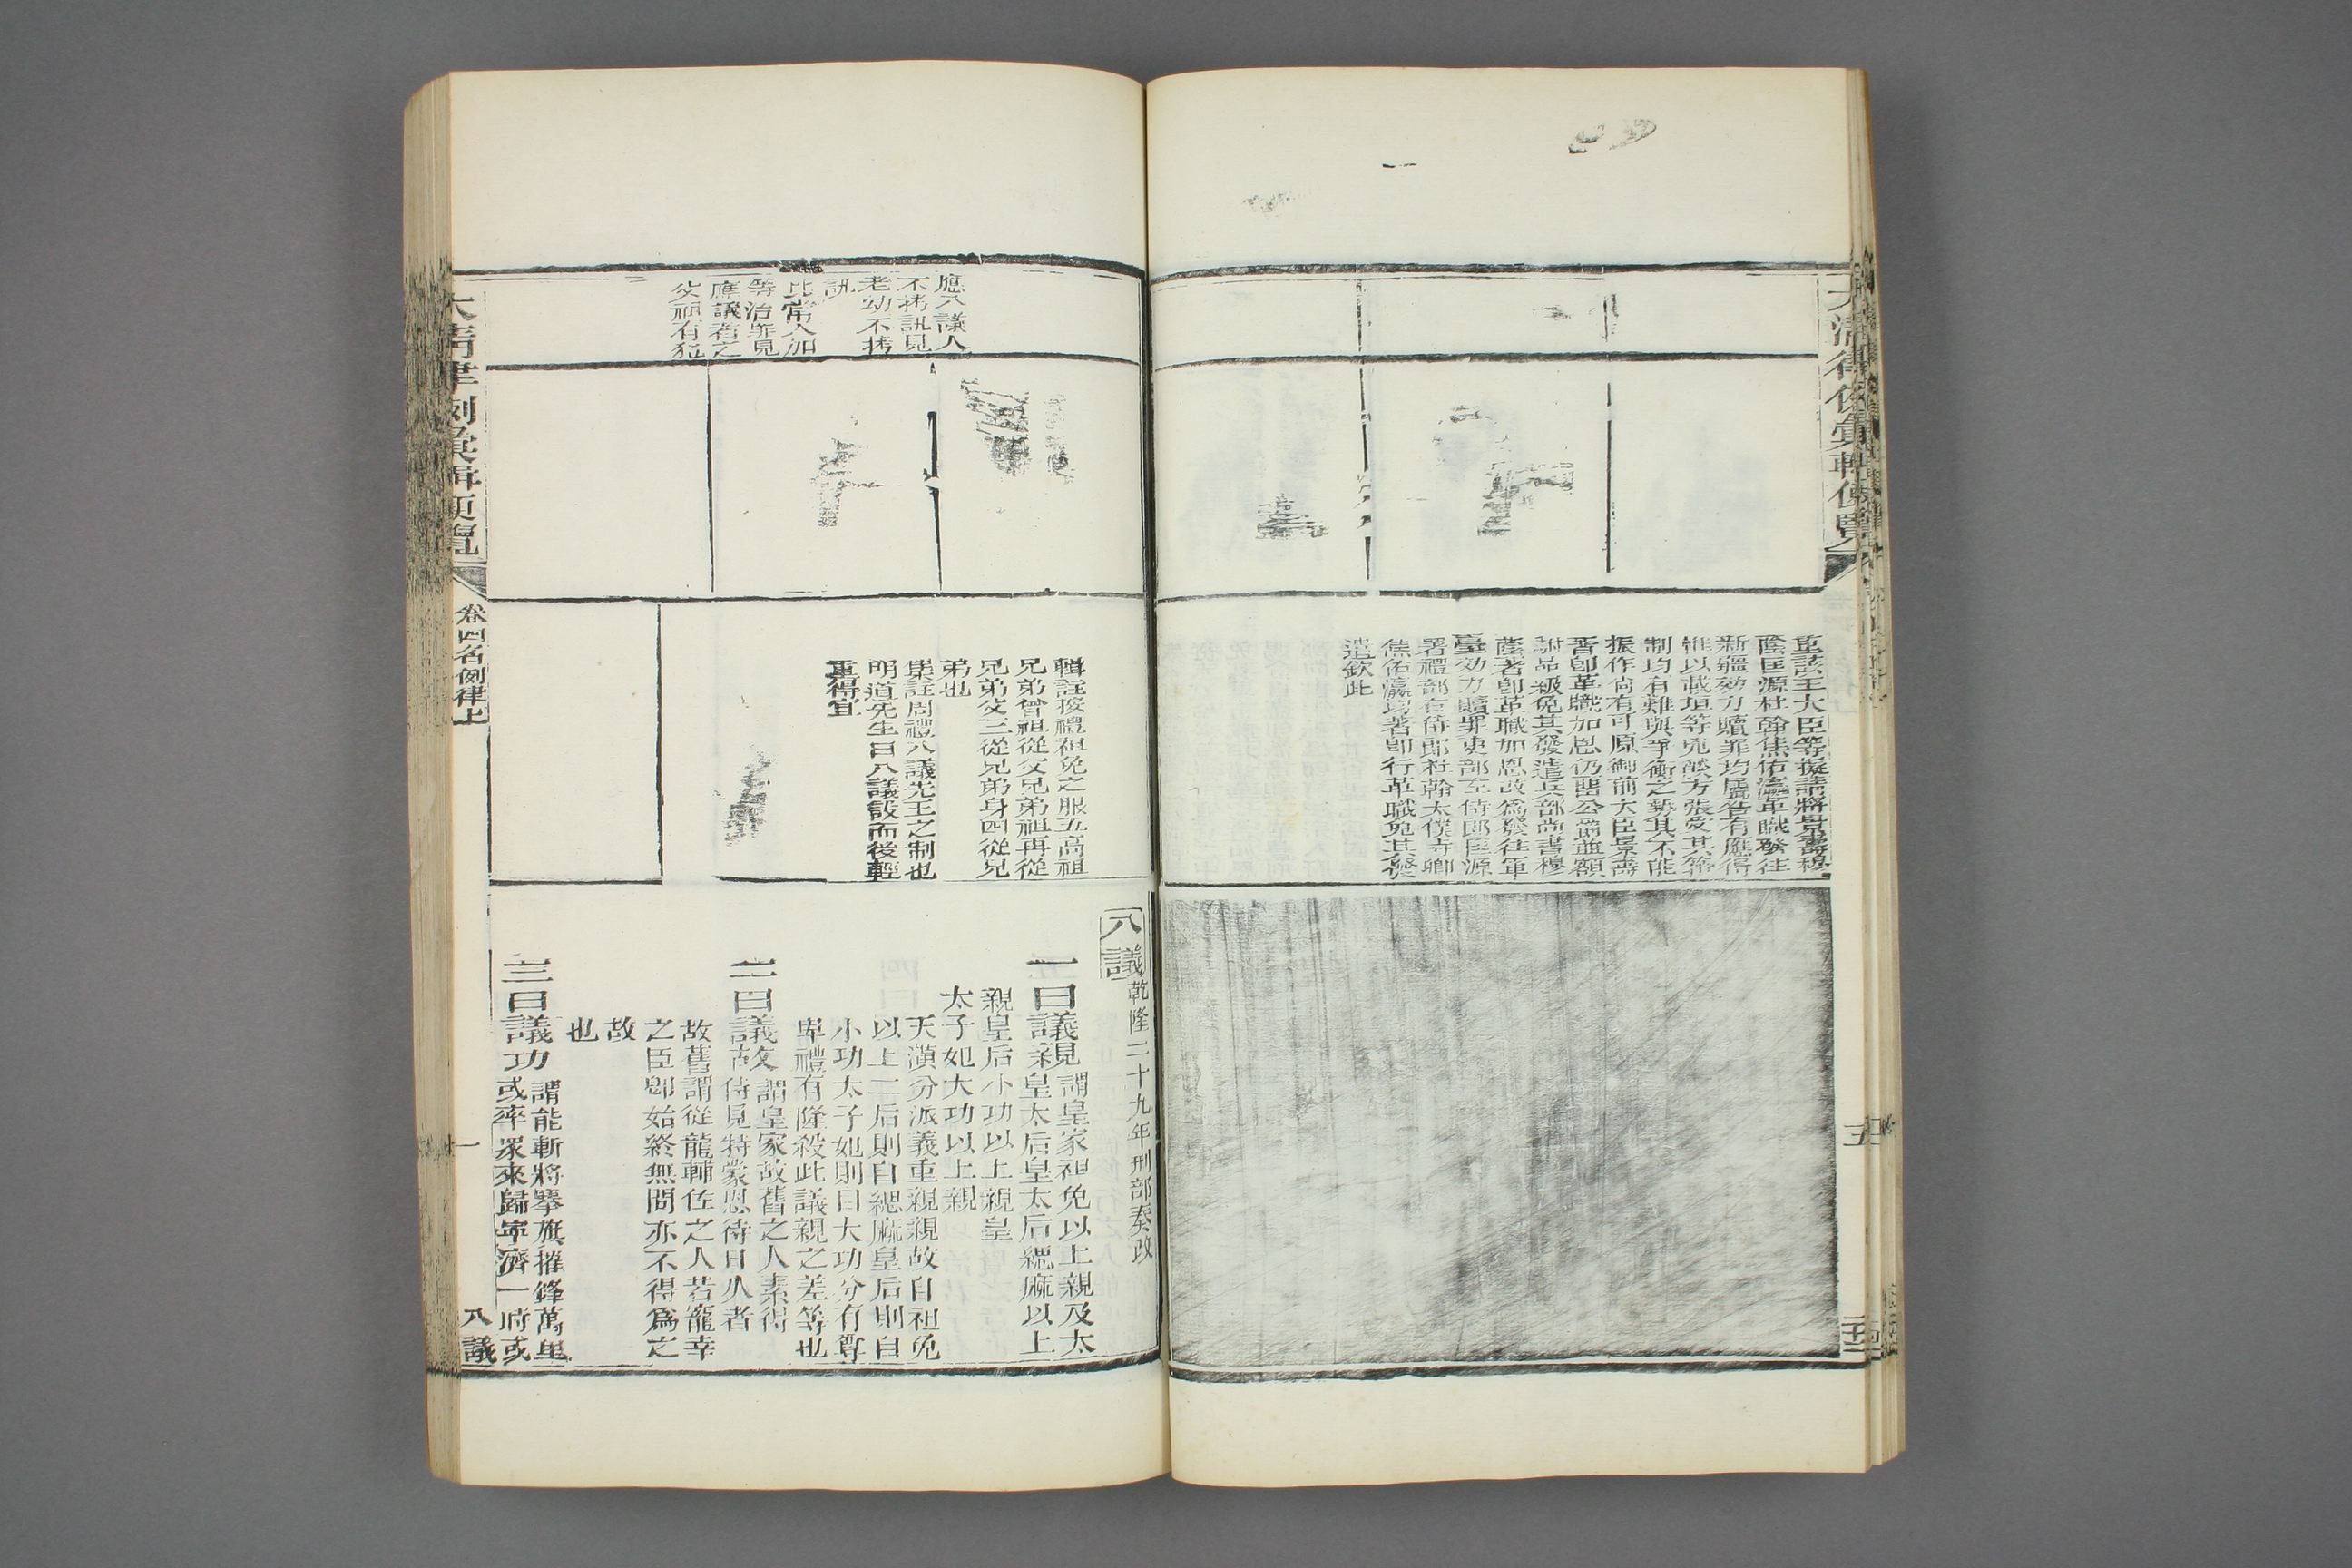 大清律例彙輯便覽
五
旨該王大臣等擬請將景壽穆
蔭匡源杜翰焦佑瀛革職發往
新疆効力贖罪均屬咎有應得
惟以載垣等兇燄方張受其箝
制均有難與爭衡之勢其不能
振作尚有可原御前大臣景壽
著卽革職加恩仍留公爵並額
駙品級免其發遣兵部尚書穆
蔭著卽革職加恩改爲發往軍
臺効力贖罪吏部左侍郎匡源
署禮部右侍郎杜翰太僕寺卿
焦佑瀛均著卽行革職免其發
遣欽此
應八議人
不拷訊見
老幼不拷
訊
比常人加
等治罪見
應議者之
父祖有犯
輯註按禮袒免之服五高祖
兄弟曾祖從父兄弟祖再從
兄弟父三從兄弟身四從兄
弟也
集註周禮八議先王之制也
明道先生曰八議設而後輕
重得宜
八議乾隆二十九年刑部奏改
一曰議親謂皇家袒免以上親及太
皇太后皇太后緦麻以上
親皇后小功以上親皇
太子妃大功以上親
天潢分派義重親親故自袒免
以上二后則自緦麻皇后則自
小功太子妃則曰大功分有尊
卑禮有隆殺此議親之差等也
二曰議故謂皇家故舊之人素得
侍見特蒙恩待日久者
故舊謂從龍輔佐之人若寵幸
之臣卽始終無間亦不得爲之
故
也
三曰議功謂能斬將搴旗摧鋒萬里
或率衆來歸寧濟一時或
大清律例彙輯便覽
卷四名例律上
一
八議